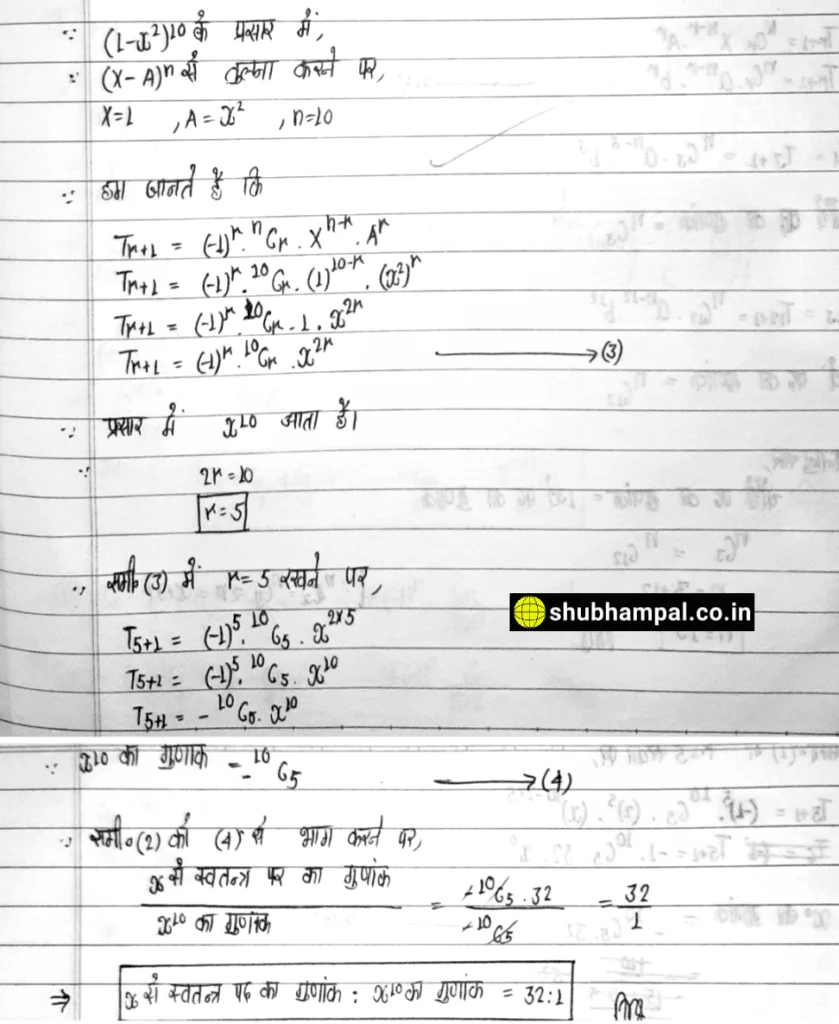 ∵ (1-x²)¹⁰ के प्रसार में,
∵ (X-A)ⁿ से तुलना करने पर,
X=1 , A=x² , n=10
∵ हम जानते है कि
Tr+1 = (-1)ʳ. ⁿCr . Xⁿ⁻ʳ . Aʳ
Tr+1 = (-1)ʳ. ¹⁰Cr. (1)¹⁰⁻ʳ . (x²)ʳ
Tr+1 = (-1)ʳ. ¹⁰Cr . 1 . x²ʳ
Tr+1 = (-1)ʳ. ¹⁰Cr . x²ʳ ⟶ (3)
∵ प्रसार में x¹⁰ आता है।
∵ 2r=10
r=5
∴ समी० (3) में r=5 रखने पर,
shubhampal.co.in
T5+1 = (-1)⁵. ¹⁰C5 . x²ˣ⁵
T5+1 = (-1)⁵. ¹⁰C5. x¹⁰
T5+1 = - ¹⁰C5. x¹⁰
∵ x¹⁰ का गुणांक = -¹⁰C5 ⟶ (4)
∴ समी० (2) को (4) से भाग करने पर,
x से स्वतन्त्र पर का गुणांक / x¹⁰ का गुणांक = -¹⁰C5 . 32 / -¹⁰C5 = 32/1
⇒ x से स्वतन्त्र पद का गुणांक : x¹⁰ का गुणांक = 32:1